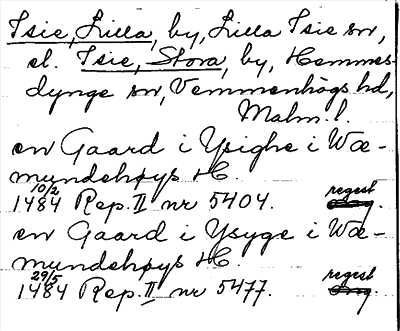 Isie, Lilla, by, Lilla Isie sn,
el. Isie, Stora, by, Hemmes-
dynge sn, Vemmenhögs hd,
Malm. l.
en Gaard i Ysighe i Wæ-
mundehøys H.
10/2 1484 Rep. II nr 5404. regest
en Gaard i Ysyge i Wæ-
mundehøys H.
29/5 1484 Rep. II nr 5477. regest